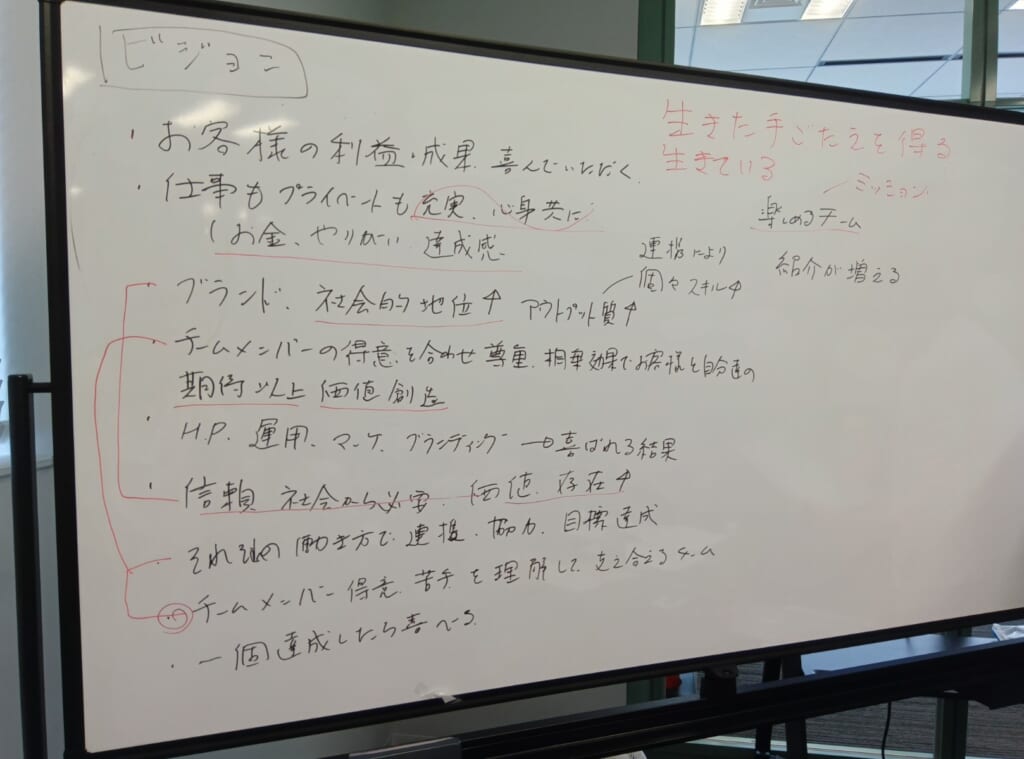 ビジョン
・お客様の利益・成果 喜んでいただく
・仕事もプライベートも充実、心身共に
お金、やりがい 達成感
ブランド、社会的地位↑ アウトプット質↑
チームメンバーの得意を合わせ尊重、相乗効果でお客様と自分達の
期待以上 価値創造
・H.P. 運用、マーケ、ブランディング → 喜ばれる結果
・信頼 社会から必要、価値、存在↑
それぞれの働き方で連携、協力、目標達成
・チームメンバー得意、苦手を理解して支え合えるチーム
・一個達成したら喜べる
生きた手ごたえを得る
生きている
ミッション
楽しめるチーム
連携により
個々スキル↑
紹介が増える